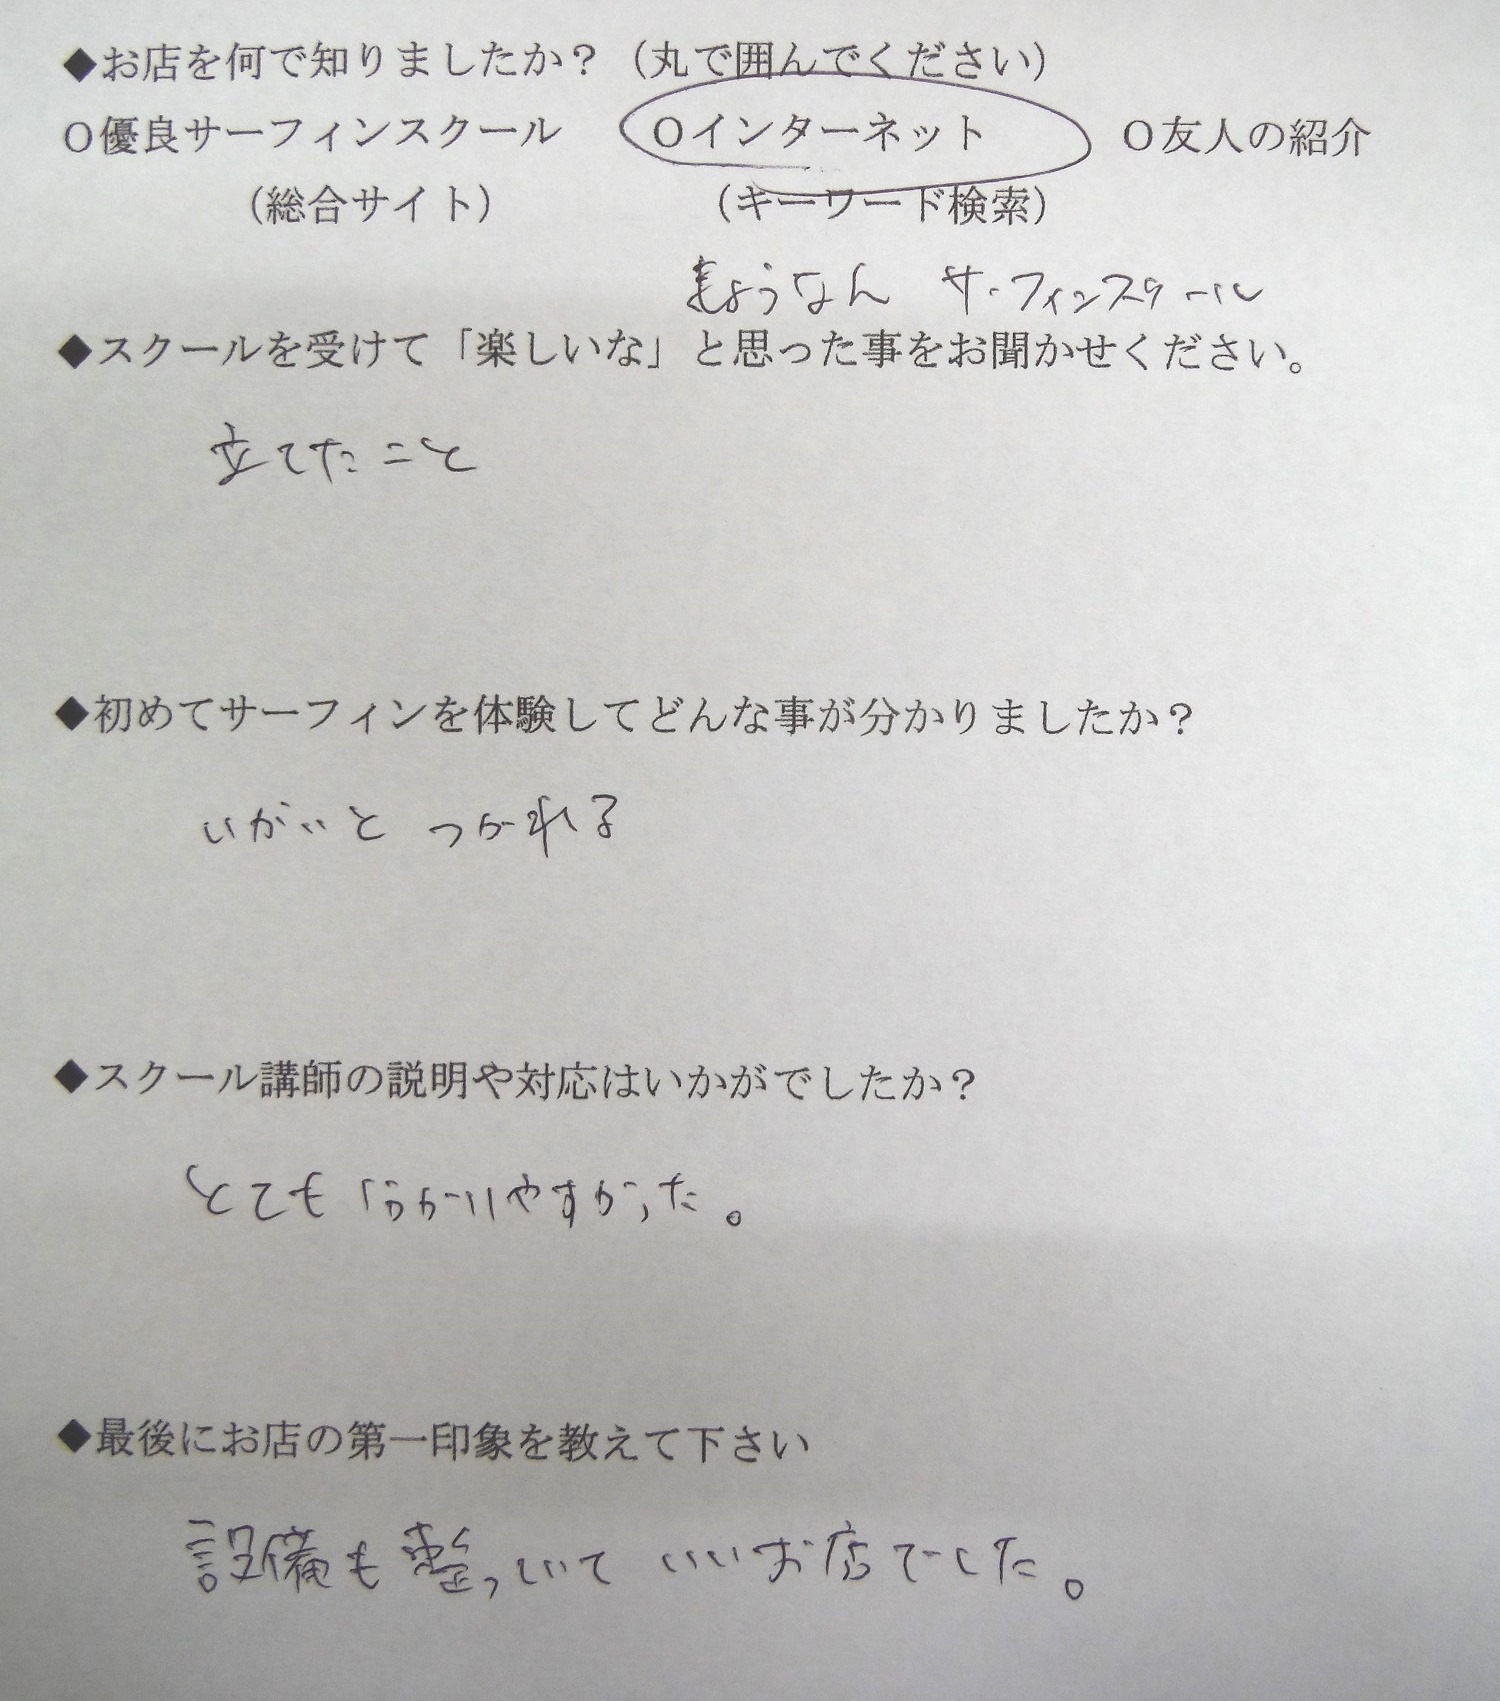 ◆お店を何で知りましたか？（丸で囲んでください）
○優良サーフィンスクール ○インターネット ○友人の紹介
（総合サイト） （キーワード検索）
サーフィンスクール
◆スクールを受けて「楽しいな」と思った事をお聞かせください。
立てたこと
◆初めてサーフィンを体験してどんな事が分かりましたか？
いがいと つかれる
◆スクール講師の説明や対応はいかがでしたか？
とても分かりやすかった。
◆最後にお店の第一印象を教えて下さい
設備も整っいて いいお店でした。